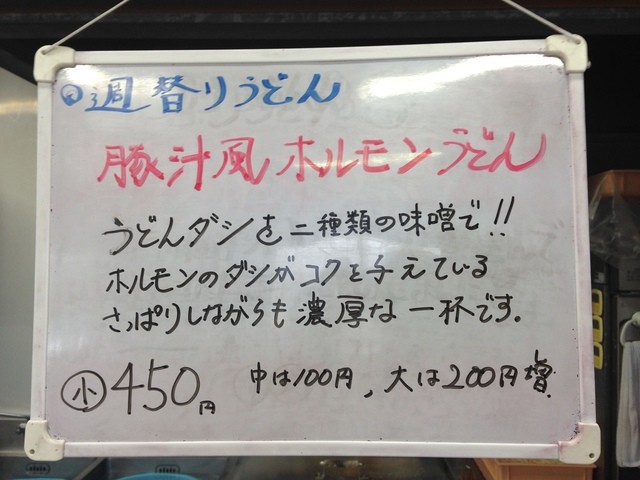 ◎週替りうどん
豚汁風ホルモンうどん
うどんダシを二種類の味噌で!!
ホルモンのダシがコクを与えている
さっぱりしながらも濃厚な一杯です。
小 450円 中は100円、大は200円増